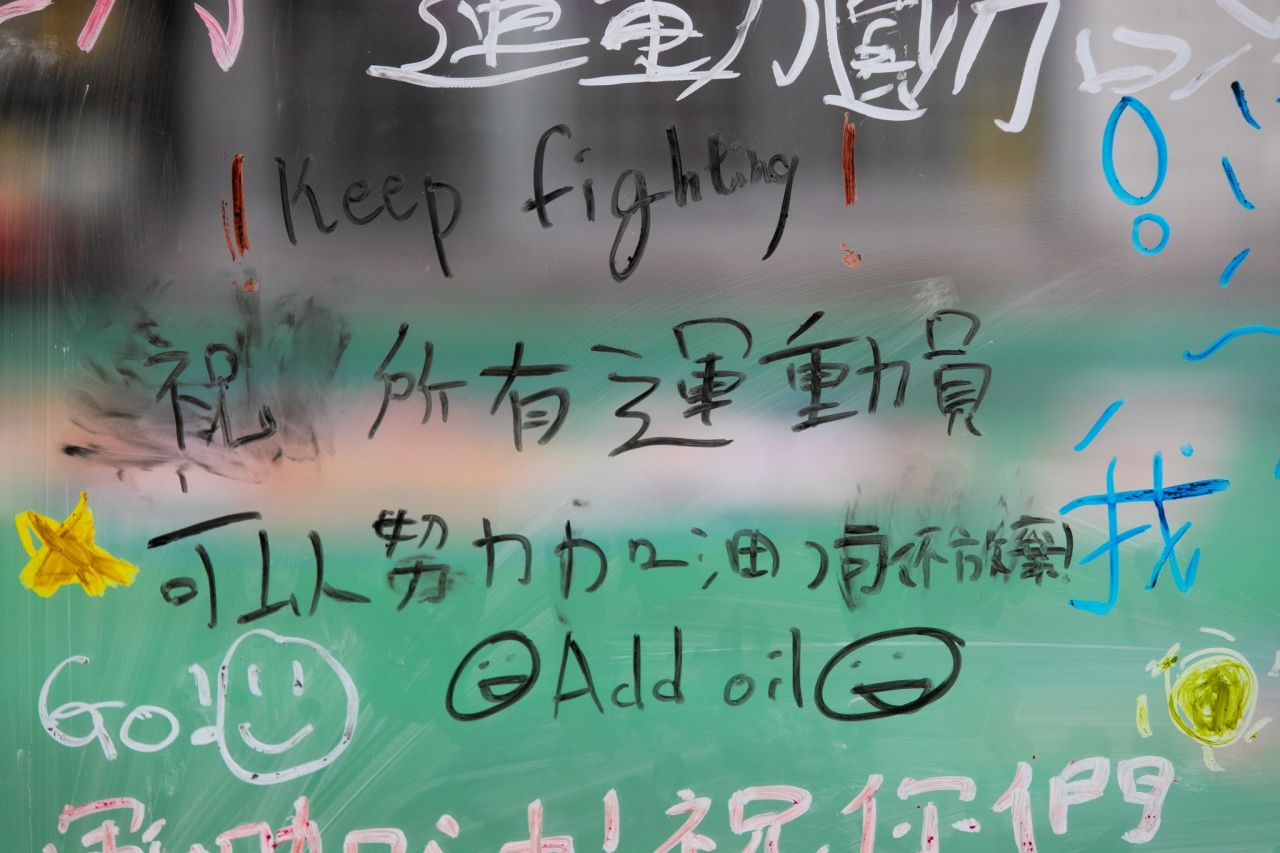 運動
! Keep fighting !
祝 所有運動員
我
可以努力加油,有不放棄!
Go!
Add oil
祝你們